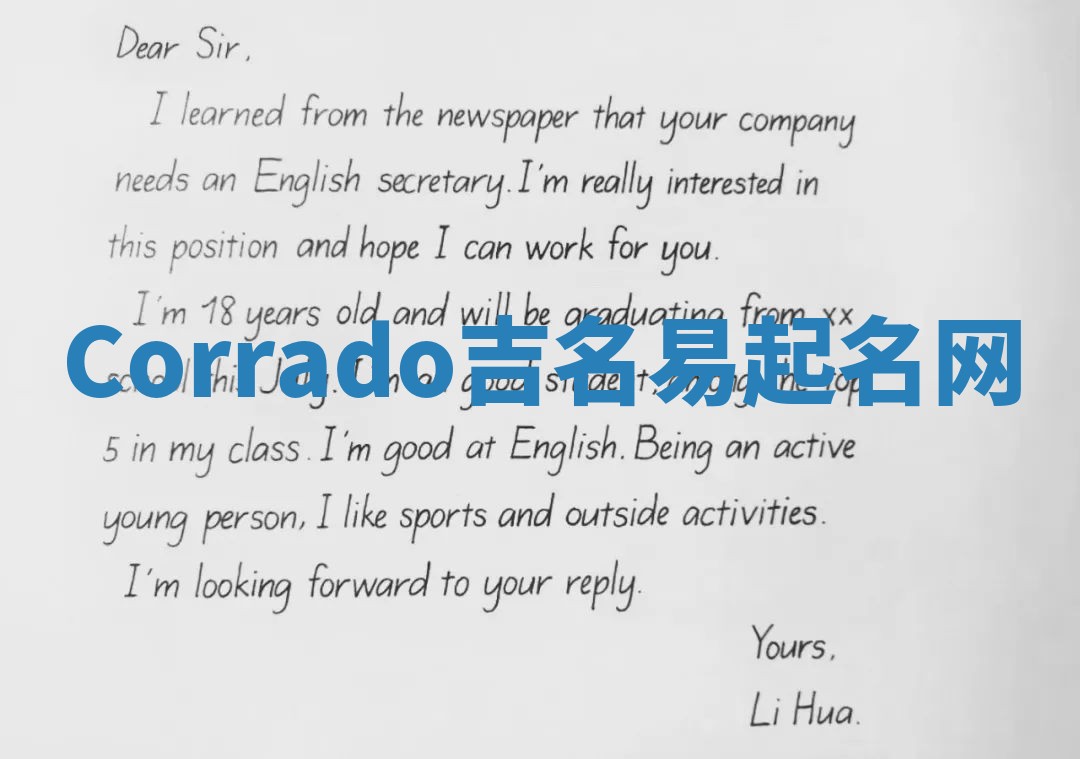 Dear Sir,
I learned from the newspaper that your company
needs an English secretary. I'm really interested in
this position and hope I can work for you.
I'm 18 years old and will be graduating from xx
Corrado吉名易起名网
school this July. I'm a good student, among the top
5 in my class. I'm good at English. Being an active
young person, I like sports and outside activities.
I'm looking forward to your reply.
Yours,
Li Hua.